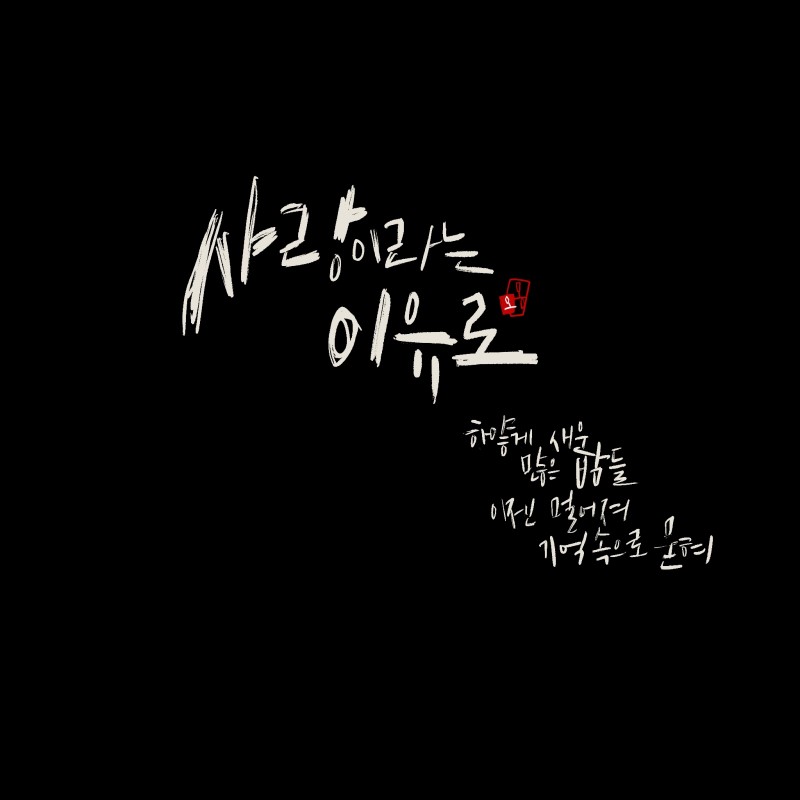 사랑이라는
이유로
오
하얗게 새운
많은 밤들
이젠 멀어져
기억 속으로 묻혀